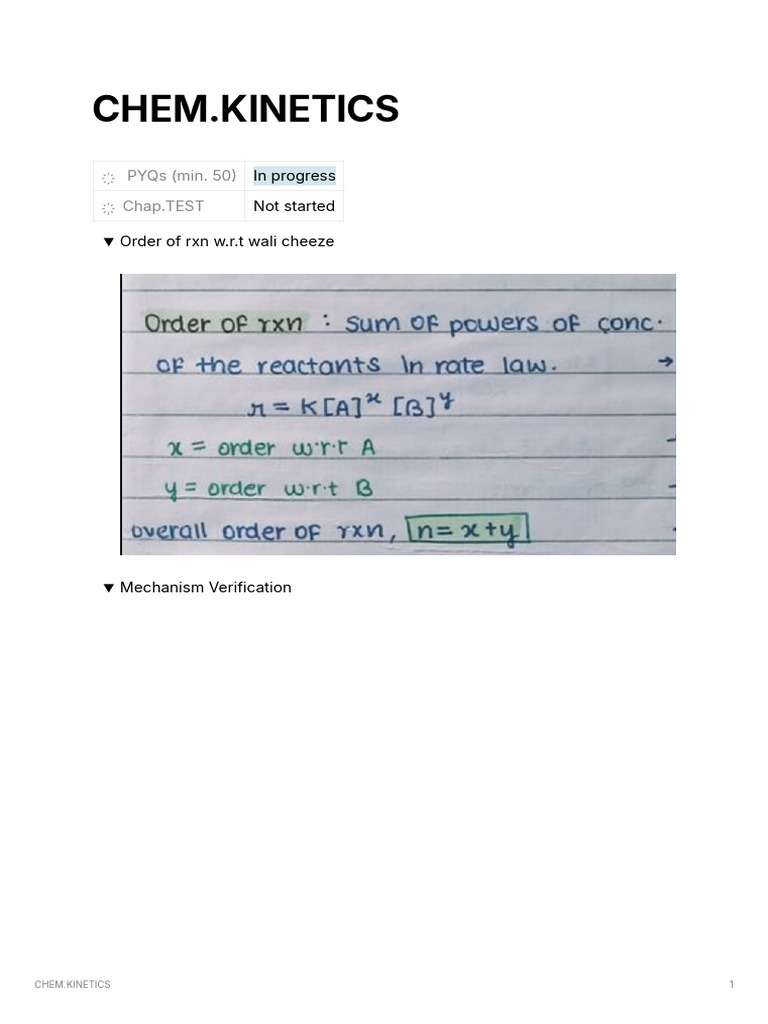 CHEM.KINETICS
PYQs (min. 50) In progress
Chap.TEST Not started
▼ Order of rxn w.r.t wali cheeze
Order of rxn : sum of powers of conc.
of the reactants in rate law. →
r = K[A]ˣ [B]ʸ
x = order w.r.t A
y = order w.r.t B
overall order of rxn, n = x+y
▼ Mechanism Verification
CHEM.KINETICS 1